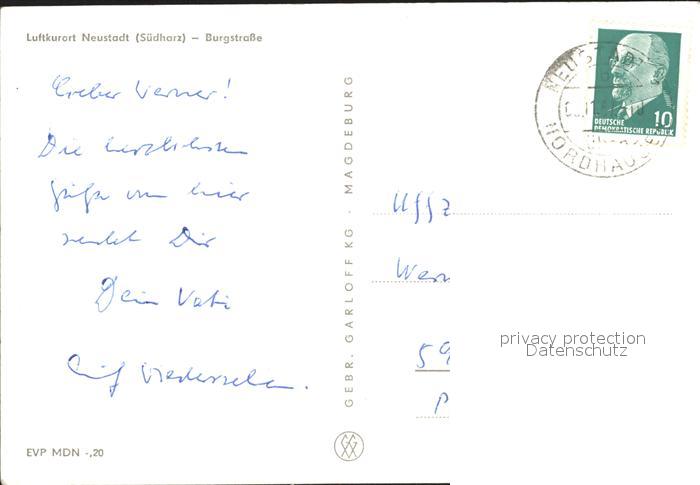 Luftkurort Neustadt (Südharz) — Burgstraße
Lieber Werner!
Die herzlichsten
Grüße von hier
sendet Dir
Dein Vati
Auf Wiedersehen.
EVP MDN -,20
GEBR. GARLOFF KG · MAGDEBURG
NORDHAUSEN
10
DEUTSCHE
DEMOKRATISCHE REPUBLIK
Uffz
Wern
59
P
privacy protection
Datenschutz